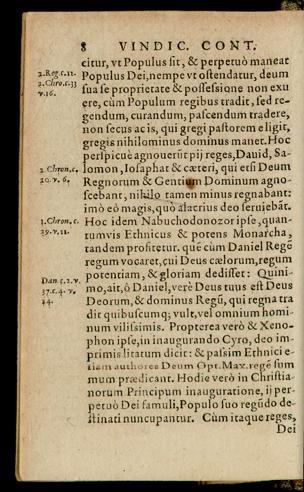 8 VINDIC. CONT.
citur, vt Populus sit, & perpetuò maneat
2.Reg.c.11.
Populus Dei, nempe vt ostendatur, deum
2.Chro.c.33
sua se proprietate & possessione non exu
v.16.
ere, cùm Populum regibus tradit, sed re-
gendum, curandum, pascendum tradere,
non secus ac is, qui gregi pastorem eligit,
gregis nihilominus dominus manet. Hoc
perspicuè agnouerũt pij reges, Dauid, Sa-
2.Chron.c.
lomon, Iosaphat & cæteri, qui etsi Deum
20. v. 6.
Regnorum & Gentium Dominum agno-
scebant, nihilo tamen minus regnabant:
imò eò magis, quò alacrius deo seruiebãt.
1.Chron.c.
Hoc idem Nabuchodonozor ipse, quan-
29. v. 11.
tumvis Ethnicus & potens Monarcha,
tandem profitetur. quẽ cùm Daniel Regẽ
regum vocaret, cui Deus cælorum, regum
Dan. c. 2. v.
potentiam, & gloriam dedisset: Quini-
37. c. 4. v.
mo, ait, ô Daniel, verè Deus tuus est Deus
44.
Deorum, & dominus Regũ, qui regna tra
dit quibuscumq; vult, vel omnium homi-
num vilissimis. Propterea verò & Xeno-
phon ipse, in inaugurando Cyro, deo im-
primis litatum dicit: & passim Ethnici e-
tiam authores Deum Opt. Max. regẽ sum
mum prædicant. Hodie verò in Christia-
norum Principum inauguratione, ij per-
petuò Dei famuli, Populo suo regũdo de-
stinati nuncupantur. Cùm itaque reges,
Dei